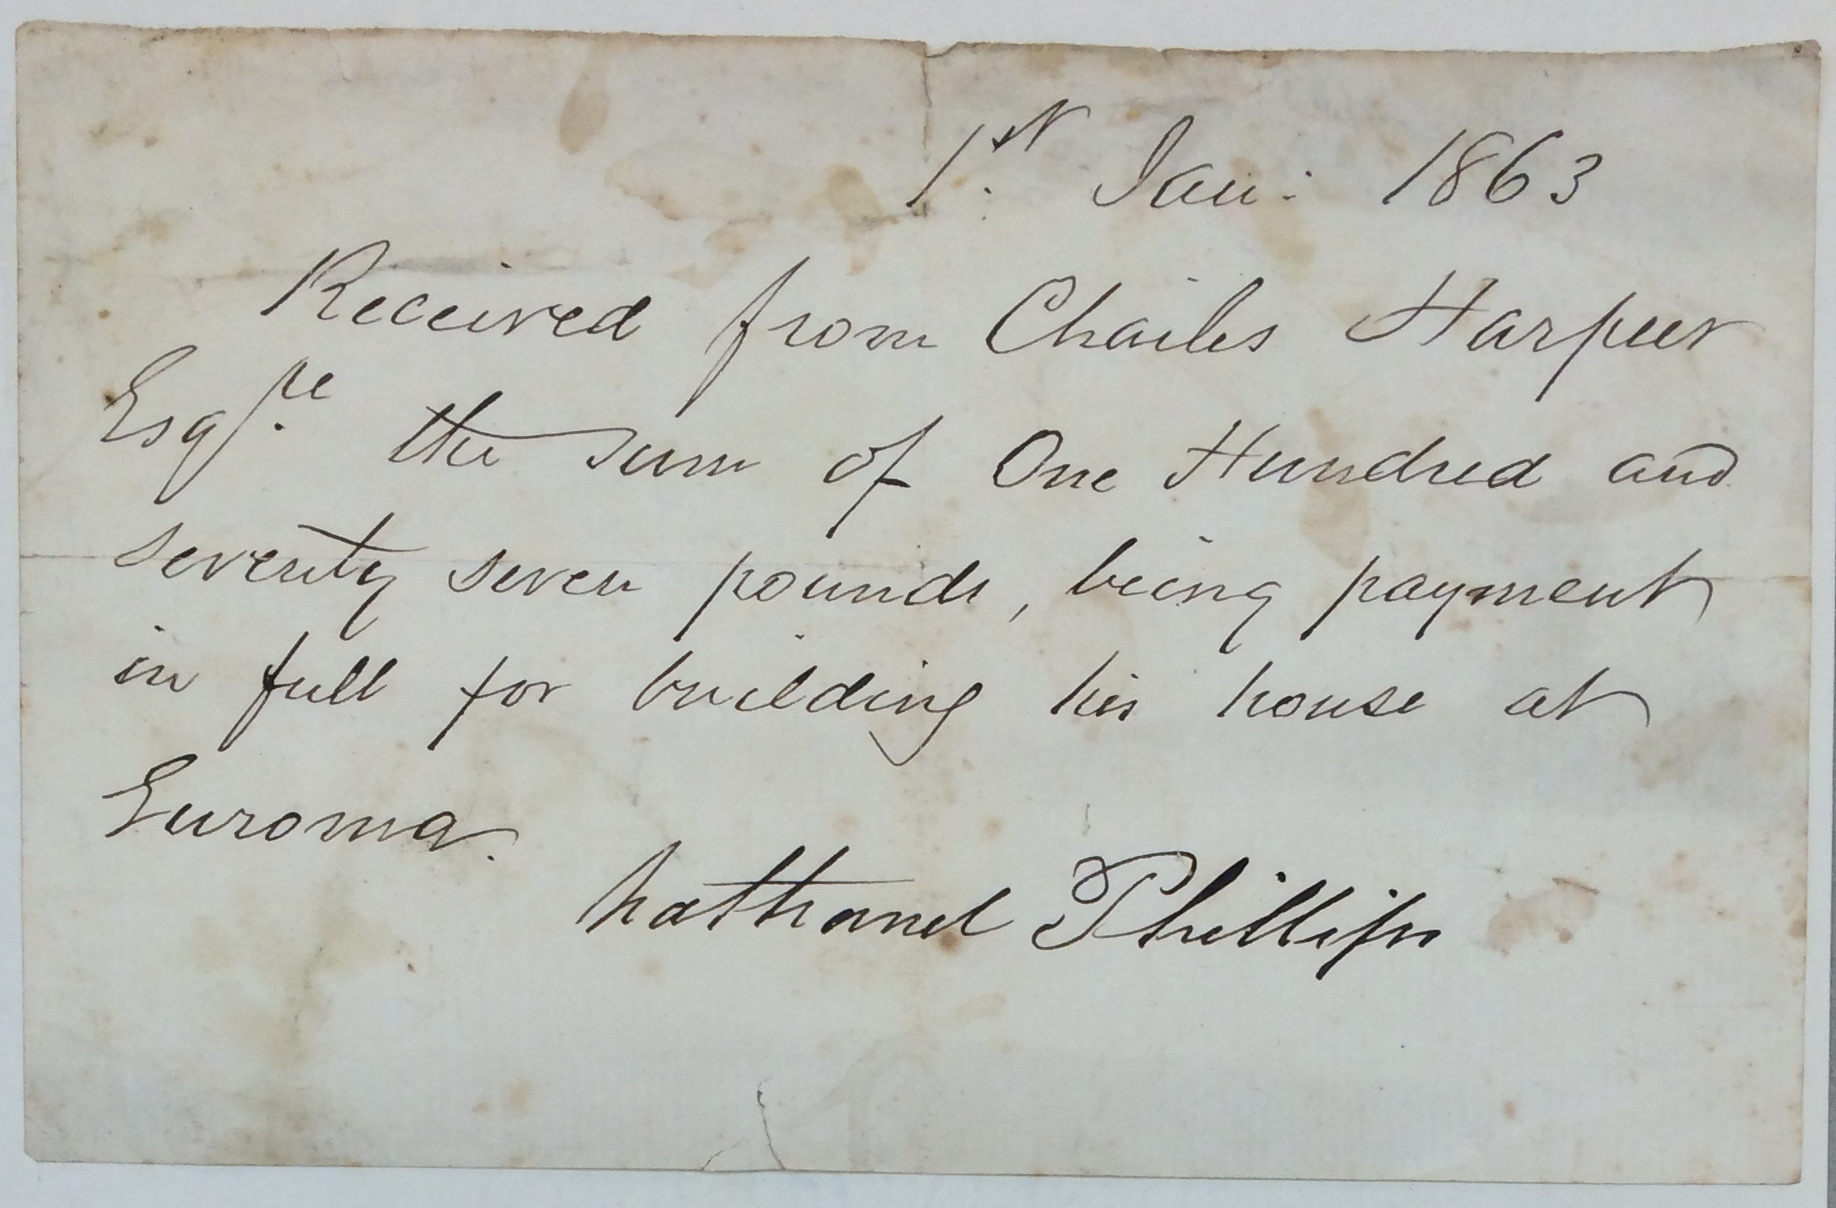 1st. Jan: 1863
Received from Charles Harpur
Esqre. the sum of One Hundred and
seventy seven pounds, being payment
in full for building his house at
Euroma.
Nathanel Phillips